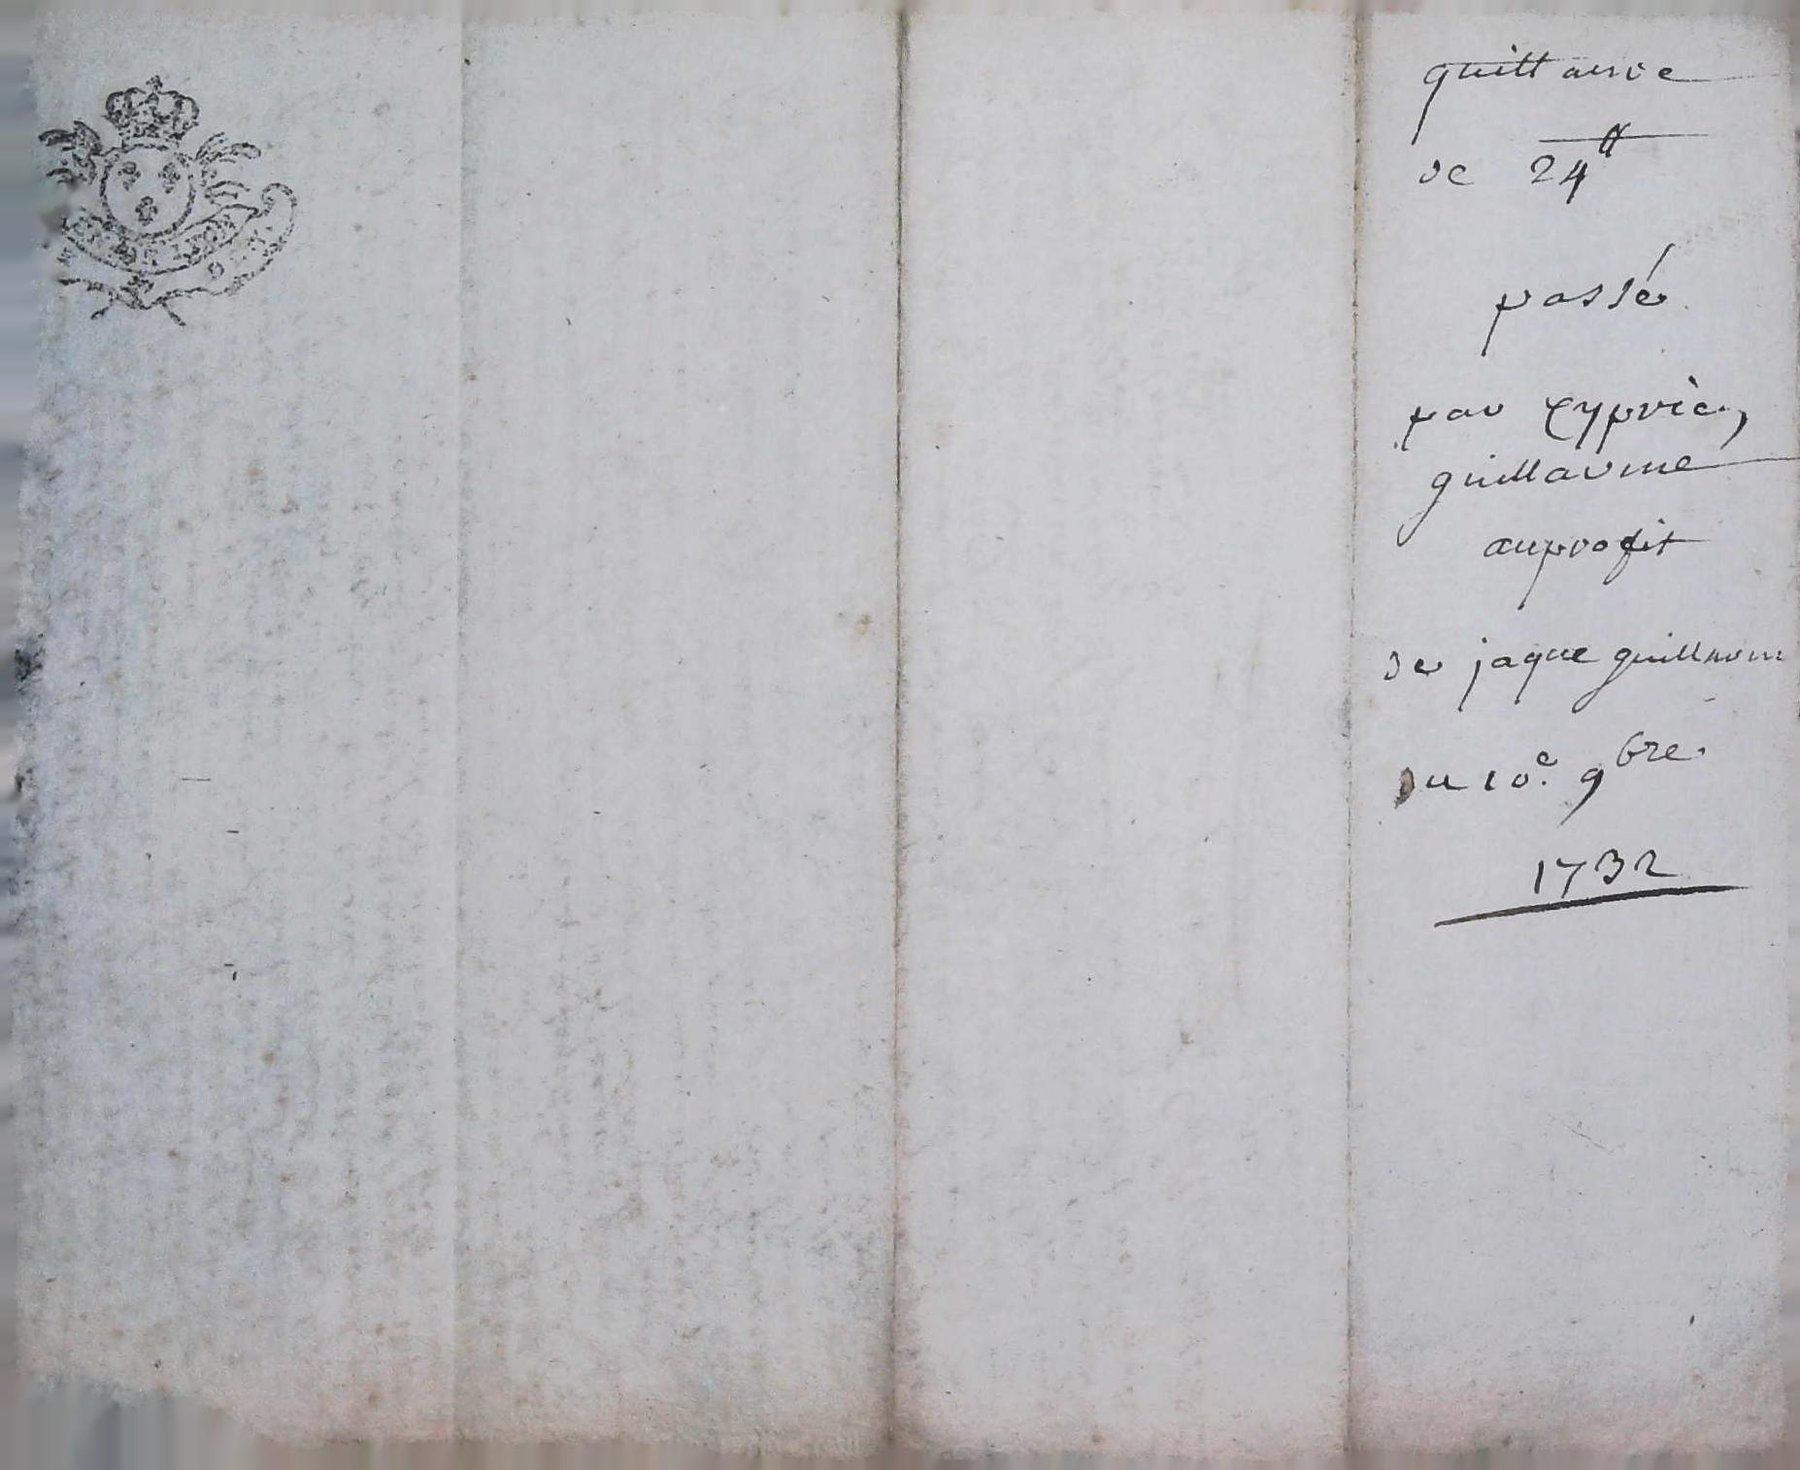 quittance
de 24₶
passé
par Cyprien
guillaume
auprofit
de jaque guillaume
du 10e. 9bre.
1732